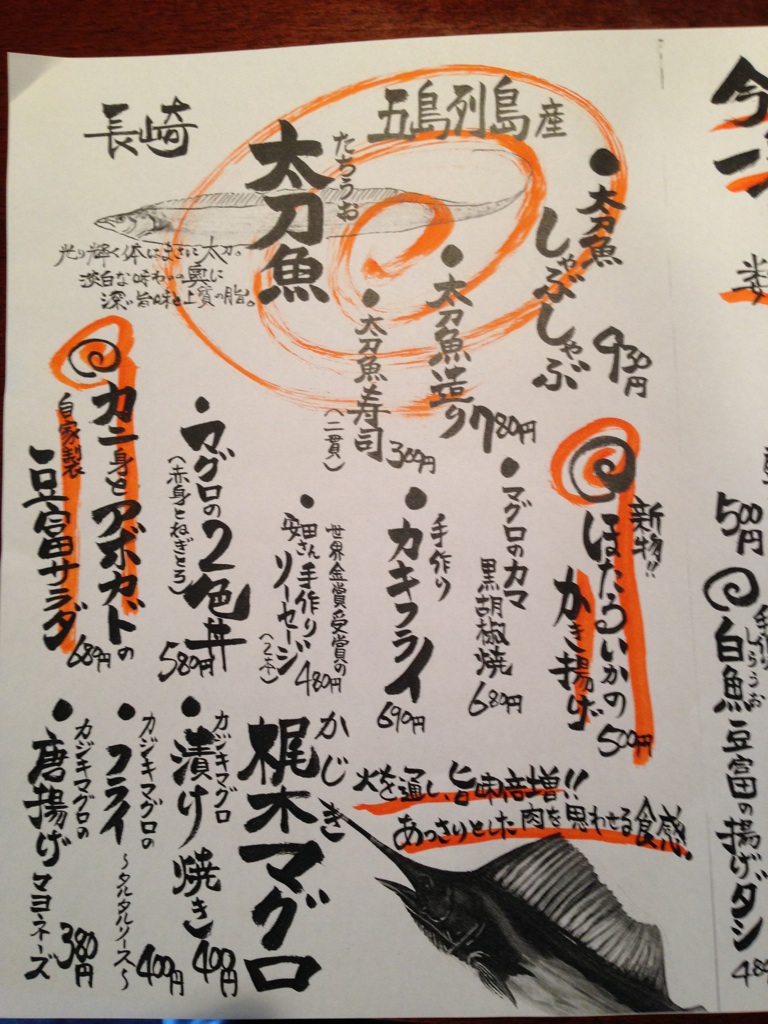 今
一
500円
手作り
しらうお
白魚豆富の揚げダシ
五島列島産
長崎
たちうお
太刀魚
光り輝く体はまさに太刀。
淡白な味わいの奥に
深い旨味と上質の脂。
●太刀魚
しゃぶしゃぶ
930円
●太刀魚造り
780円
●太刀魚寿司
(二貫)
300円
新物!!
ほたるいかの
かき揚げ
500円
●マグロのカマ
黒胡椒焼
680円
●手作り
カキフライ
690円
世界金賞受賞の
●安田さん手作り
ソーセージ
(2本)
480円
●マグロの2色丼
(赤身とねぎとろ)
580円
カニ身とアボカドの
自家製
豆富サラダ
689円
火を通し、旨味倍増!!
あっさりとした肉を思わせる食感。
かじき
梶木マグロ
カジキマグロ
●漬け焼き
400円
カジキマグロの
●フライ
～タルタルソース～
400円
カジキマグロの
●唐揚げマヨネーズ
380円